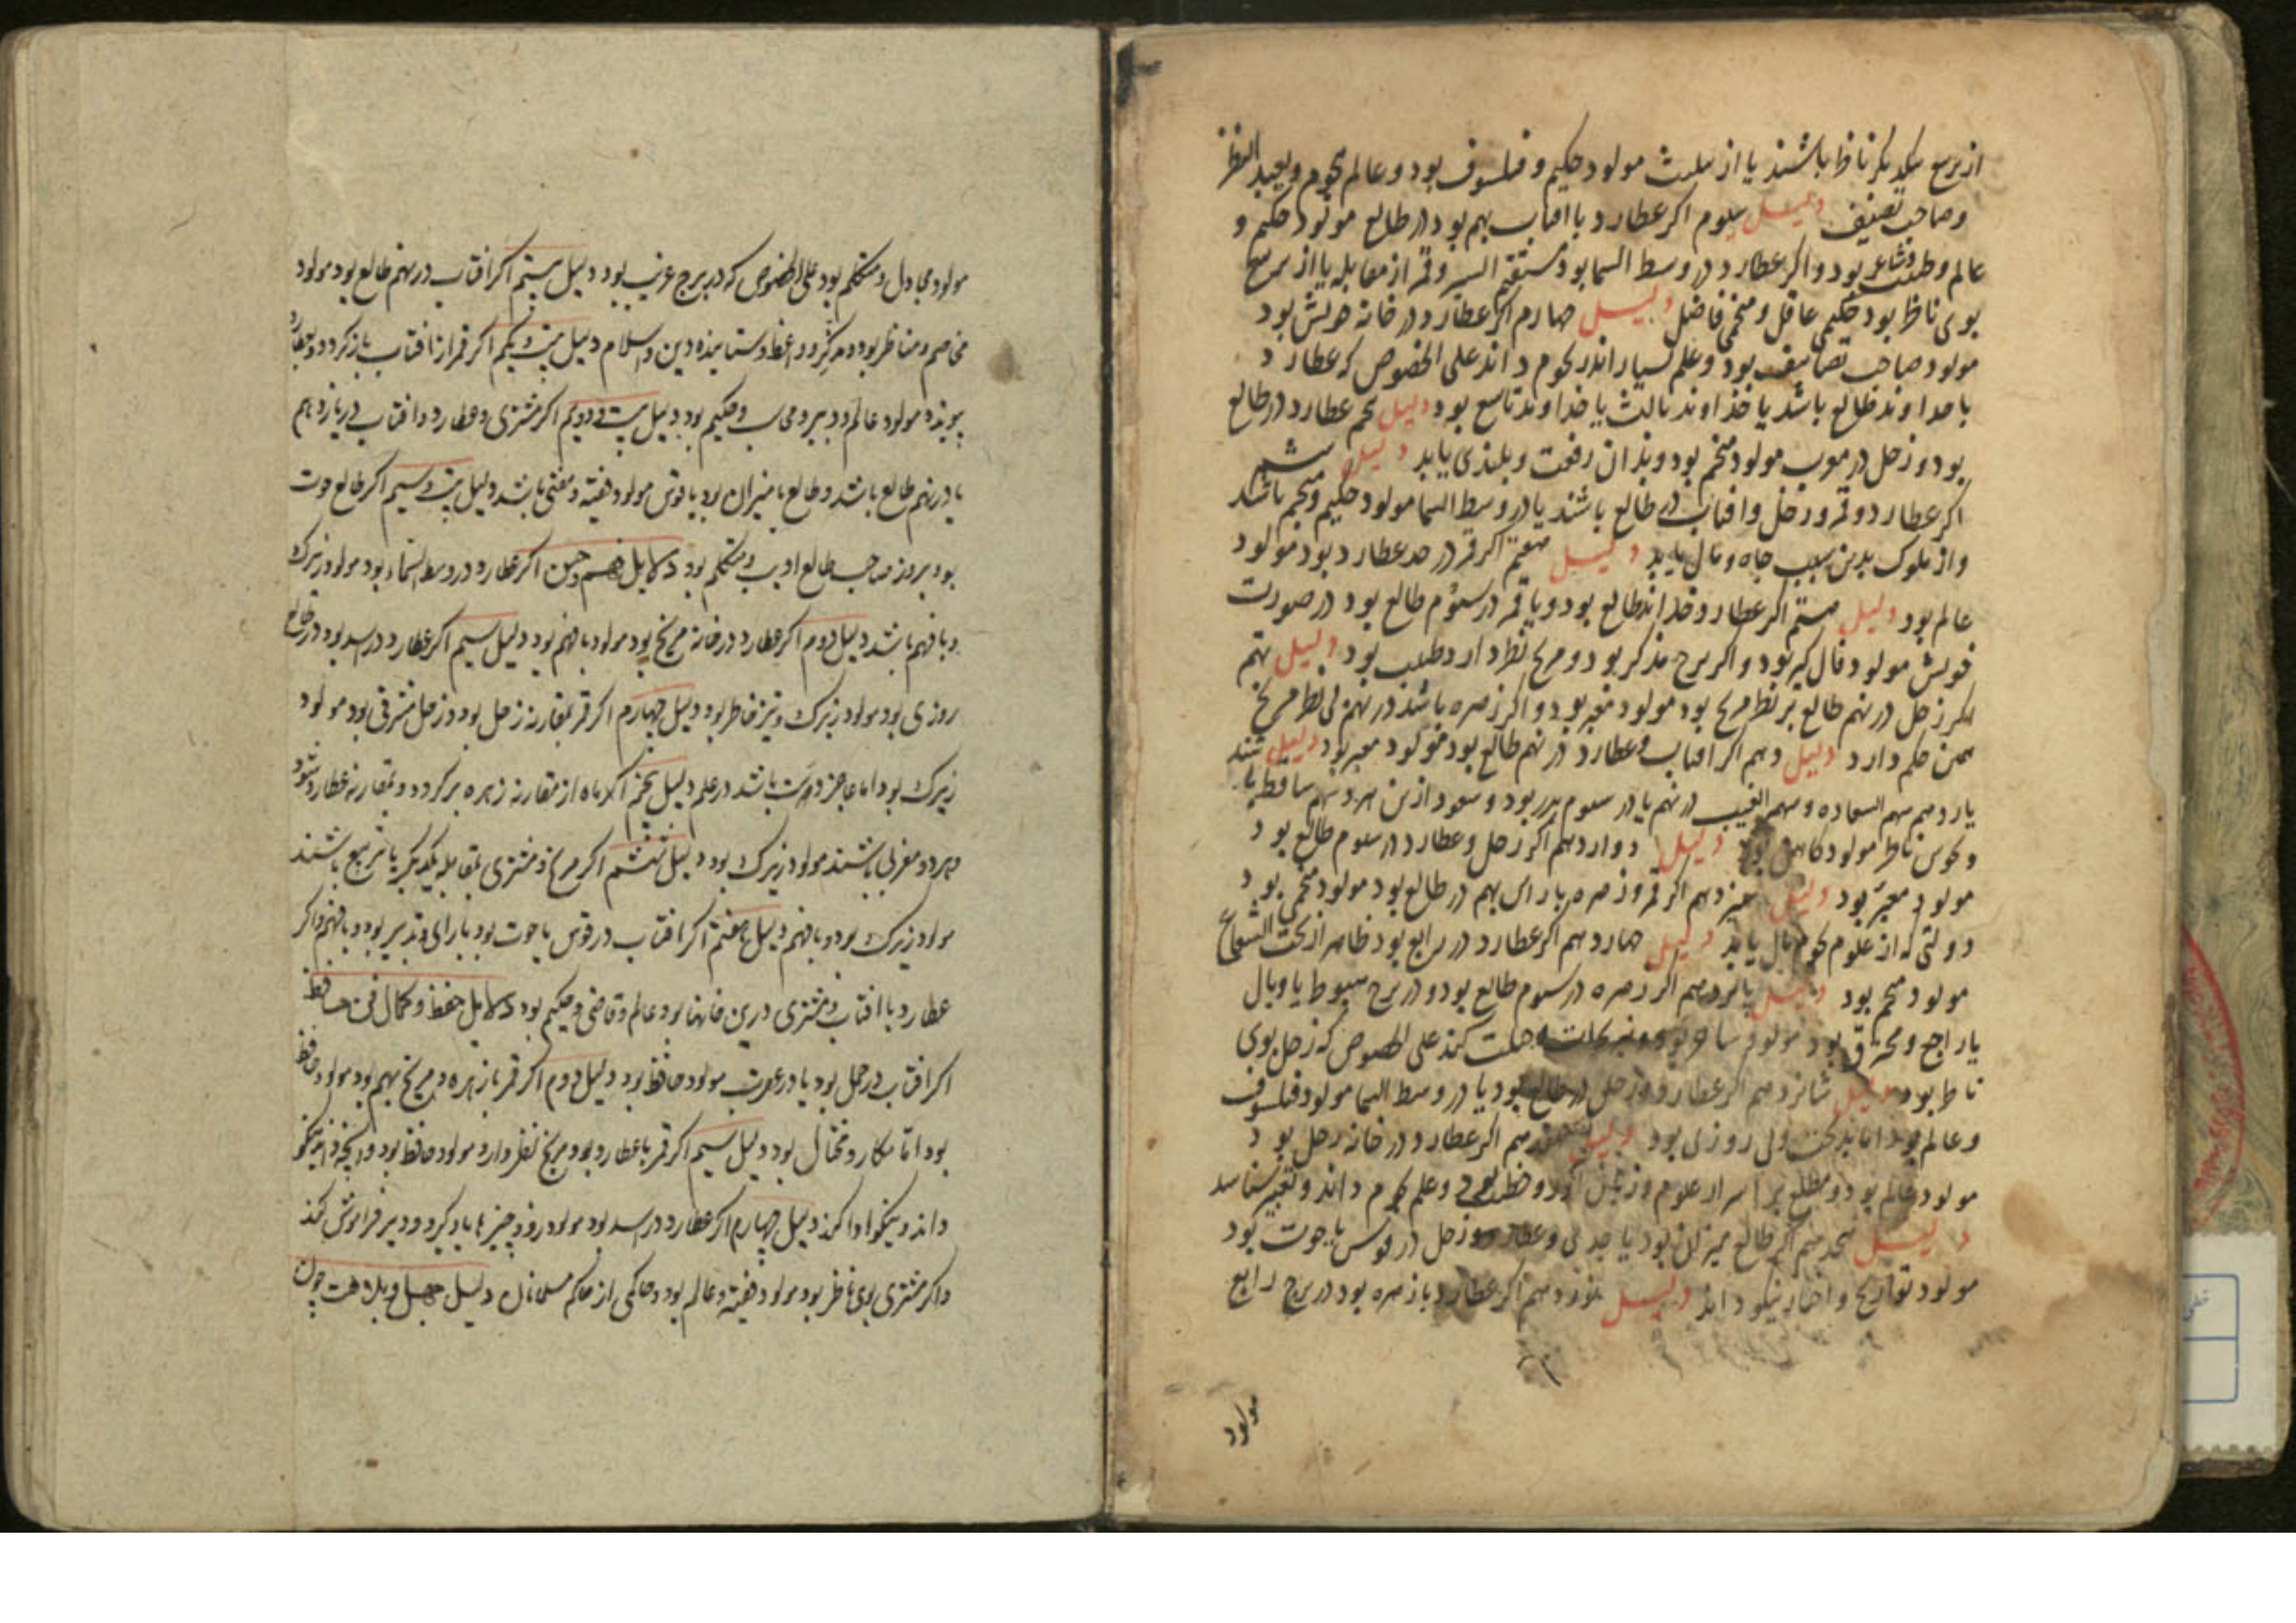 از تربیع یکدیگر ناظر باشند یا از تثلیث مولود حکیم و فیلسوف بود و عالم نجوم و بعید النظر
و صاحب تصنیف دلیل سوم اکر عطارد با افتاب بهم بود در طالع مولود حکیم و
عالم و طبیب و شاعر بود و اکر عطارد در وسط السما بود مستقیم السیر و قمر از مقابله یا از تربیع
بوی ناظر بود حکیمی عاقل و منجمی فاضل دلیل چهارم اکر عطارد در خانه خویش بود
مولود صاحب تصانیف بود و علم بسیار اندر نجوم داند علی الخصوص که عطارد
با خداوند طالع باشد یا خداوند ثالث یا خداوند تاسع بود دلیل پنجم عطارد در طالع
بود و زحل در مولود منجم بود و بدان رفعت و بلندی یابد دلیل ششم
اکر عطارد و قمر و زحل و افتاب در طالع باشند یا در وسط السما مولود حکیم و منجم باشد
و از ملوک بدین سبب جاه و مال یابد دلیل هفتم اکر قمر در حد عطارد بود مولود
عالم بود دلیل هشتم اکر عطارد خداوند طالع بود و با قمر در سوم طالع بود در صورت
خویش مولود فال کیر بود و اکر برج مذکر بود و مریخ نظر دارد طبیب بود دلیل نهم
اکر زحل در نهم طالع بر نظر مریخ بود مولود معبر بود و اکر زهره باشد در نهم بی نظر مریخ
همین حکم دارد دلیل دهم اکر افتاب و عطارد در نهم طالع بود مولود معبر بود دلیل
یازدهم سهم السعاده و سهم الغیب در نهم یا در سوم بود و سعود ازین هر دو سهم ساقط
و نحوس ناظر مولود کاهن بود دلیل دوازدهم اکر زحل و عطارد در سوم طالع بود
مولود معبر بود دلیل سیزدهم اکر قمر و زهره با راس بهم در طالع بود مولود منجمی بود
دولتی که از علوم نجوم مال یابد دلیل چهاردهم اکر عطارد در رابع بود ظاهر از تحت الشعاع
مولود منجم بود دلیل پانزدهم اکر زهره در سوم طالع بود و در برج هبوط یا وبال
یا راجع و محترق بود مولود ساحر بود و نیرنجات و حیلت کند علی الخصوص که زحل بوی
ناظر بود دلیل شانزدهم اکر عطارد و زحل در طالع بود یا در وسط السما مولود فیلسوف
و عالم بود اما بدبخت و بی روزی بود دلیل هفدهم اکر عطارد در خانه زحل بود
مولود عالم بود و مطلع بر اسرار علوم و زبان آور و خطیب بود و علم نجوم داند و تعبیر شناسد
دلیل هجدهم اکر طالع میزان بود یا جدی و عطارد و زحل در قوس یا حوت بود
مولود تواریخ و اخبار نیکو داند دلیل نوزدهم اکر عطارد با زهره بود در برج رابع
مولود
مولود مجادل و متکلم بود علی الخصوص که در برج غریب بود دلیل بیستم اکر افتاب در نهم طالع بود مولود
مخاصم و مناظر بود و مذکر و واعظ و ستاینده دین و اسلام دلیل بیست و یکم اکر قمر از افتاب باز کردد و بعطارد
پیوندد مولود عالم و دبیر و محاسب و حکیم بود دلیل بیست و دویم اکر مشتری و عطارد و افتاب در یازدهم
یا در نهم طالع باشد و طالع یا میزان بود یا قوس مولود فقیه و مفتی باشد دلیل بیست و سیم اکر طالع حوت
بود بروز صاحب طالع ادیب و متکلم بود دلایل فهم و حس اکر عطارد در وسط السماء بود مولود زیرک
و با فهم باشد دلیل دوم اکر عطارد در خانه مریخ بود مولود با فهم بود دلیل سیم اکر عطارد در اسد بود در طالع
روزی بود مولود زیرک و تیز خاطر بود دلیل چهارم اکر قمر بمقارنه زحل بود و زحل مشرقی بود مولود
زیرک بود اما عاجز دوست باشد در علم دلیل پنجم اکر ماه از مقارنه زهره برکردد و بمقارنه عطارد شود
و هر دو مغربی باشند مولود زیرک بود دلیل ششم اکر مریخ و مشتری بمقابله یکدیکر یا تربیع باشند
مولود زیرک بود و با فهم دلیل هفتم اکر افتاب در قوس یا حوت بود با رای و تدبیر بود و با فهم و اکر
عطارد با افتاب و مشتری درین خانها بود عالم و قاضی و حکیم بود دلایل حفظ و کمال فی حفظ
اکر افتاب در حمل بود یا در عقرب مولود حافظ بود دلیل دوم اکر قمر با زهره و مریخ بهم بود مولود حافظ
بود اما مکار و محتال بود دلیل سیم اکر قمر با عطارد بود و مریخ نظر دارد مولود حافظ بود و انچه نیکو
داند و نیکو ادا کند دلیل چهارم اکر عطارد در اسد بود مولود زود چیزها یاد کیرد و دیر فراموش کند
و اکر مشتری بوی ناظر بود مولود فقیه و عالم بود و حاکمی از حاکم مسلمانان دلیل جهل و بلادت چون